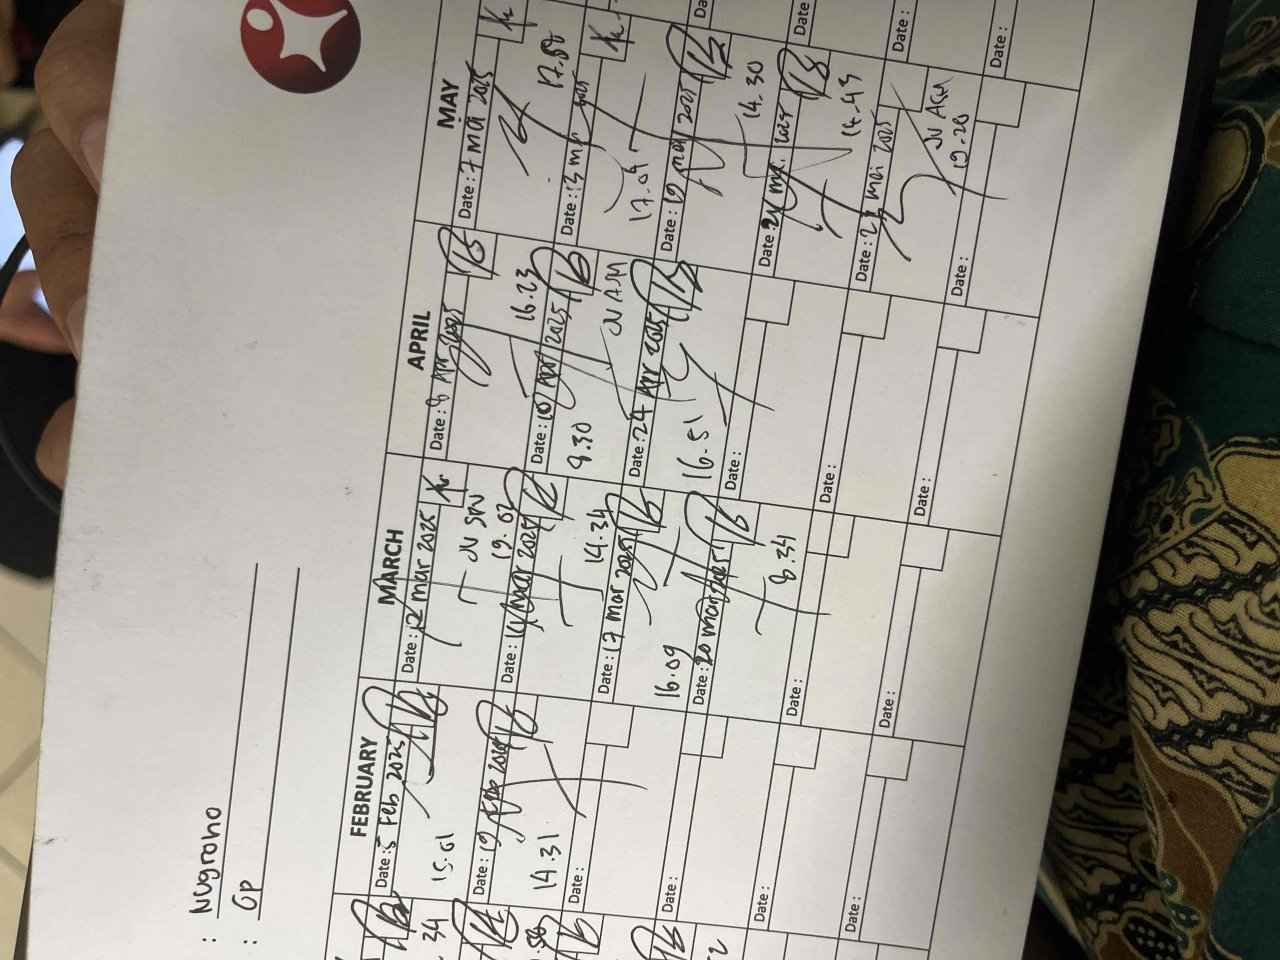 : Nugroho
: GP
FEBRUARY
MARCH
APRIL
MAY
34
Date: 5 Feb 2025
15.01
Date: 12 mar 2025
JV SDN
19.02
Date: 8 Apr 2025
16.23
Date: 7 Mei 2025
Date: 19 Feb 2025
14.31
Date: 14 mar 2025
14.34
Date: 10 Apr 2025
8.30
Date: 13 mei 2025
17.04
Date:
Date: 17 mar 2025
16.09
Date: 24 Apr 2025
16.51
Date: 19 mei 2025
14.30
Date:
Date: 20 mar 2025
8.34
Date:
Date: 21 mei 2025
14.49
Date:
Date:
Date:
Date: 2 mei 2025
19.20
Date:
Date:
Date:
Date:
Date:
Date:
Date: